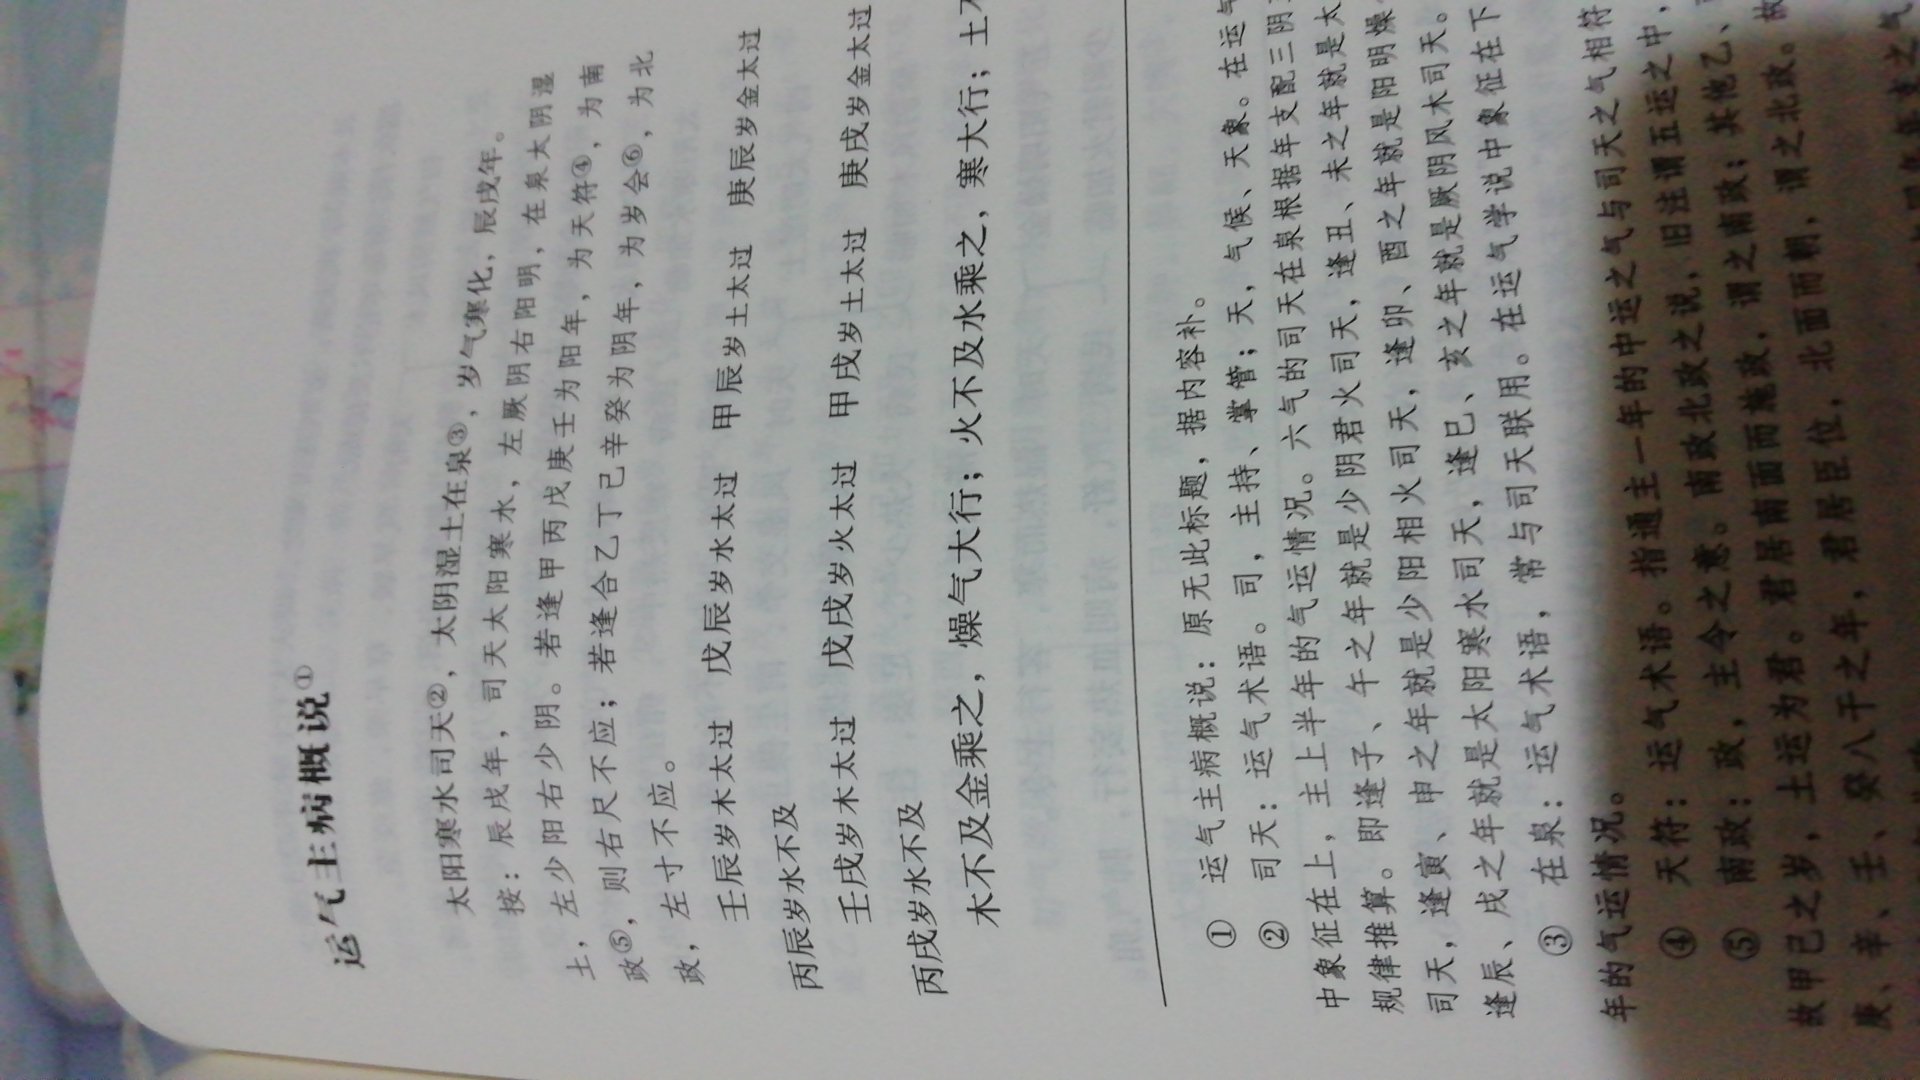 运气主病概说①
太阳寒水司天②，太阴湿土在泉③，岁气寒化，辰戌年。
按：辰戌年，司天太阳寒水，左厥阴右阳明，在泉太阴湿
土，左少阳右少阴。若逢甲丙戊庚壬为阳年，为天符④，为南
政⑤，则右尺不应；若逢合乙丁己辛癸为阴年，为岁会⑥，为北
政，左寸不应。
壬辰岁木太过 戊辰岁火太过 甲辰岁土太过 庚辰岁金太过
丙辰岁水不及
壬戌岁木太过 戊戌岁火太过 甲戌岁土太过 庚戌岁金太过
丙戌岁水不及
木不及金乘之，燥气大行；火不及水乘之，寒大行；土
① 运气主病概说：原无此标题，据内容补。
② 司天：运气术语。司，主持、掌管；天，气候、天象。在运气
中象征在上，主上半年的气运情况。六气的司天在泉根据年支配三阴
规律推算。即逢子、午之年就是少阴君火司天，逢丑、未之年就是太
司天，逢寅、申之年就是少阳相火司天，逢卯、酉之年就是阳明燥
逢辰、戌之年就是太阳寒水司天，逢巳、亥之年就是厥阴风木司天。
③ 在泉：运气术语，常与司天联用。在运气学说中象征在下
年的气运情况。
④ 天符：运气术语。指通主一年的中运之气与司天之气相符
⑤ 南政：政，主令之意。南政北政之说，旧注谓五运之中，
故甲己之岁，土运为君。君居南面而施政，谓之南政；其他乙、
庚、辛、壬、癸八干之年，君居臣位，北面而朝，谓之北政。故